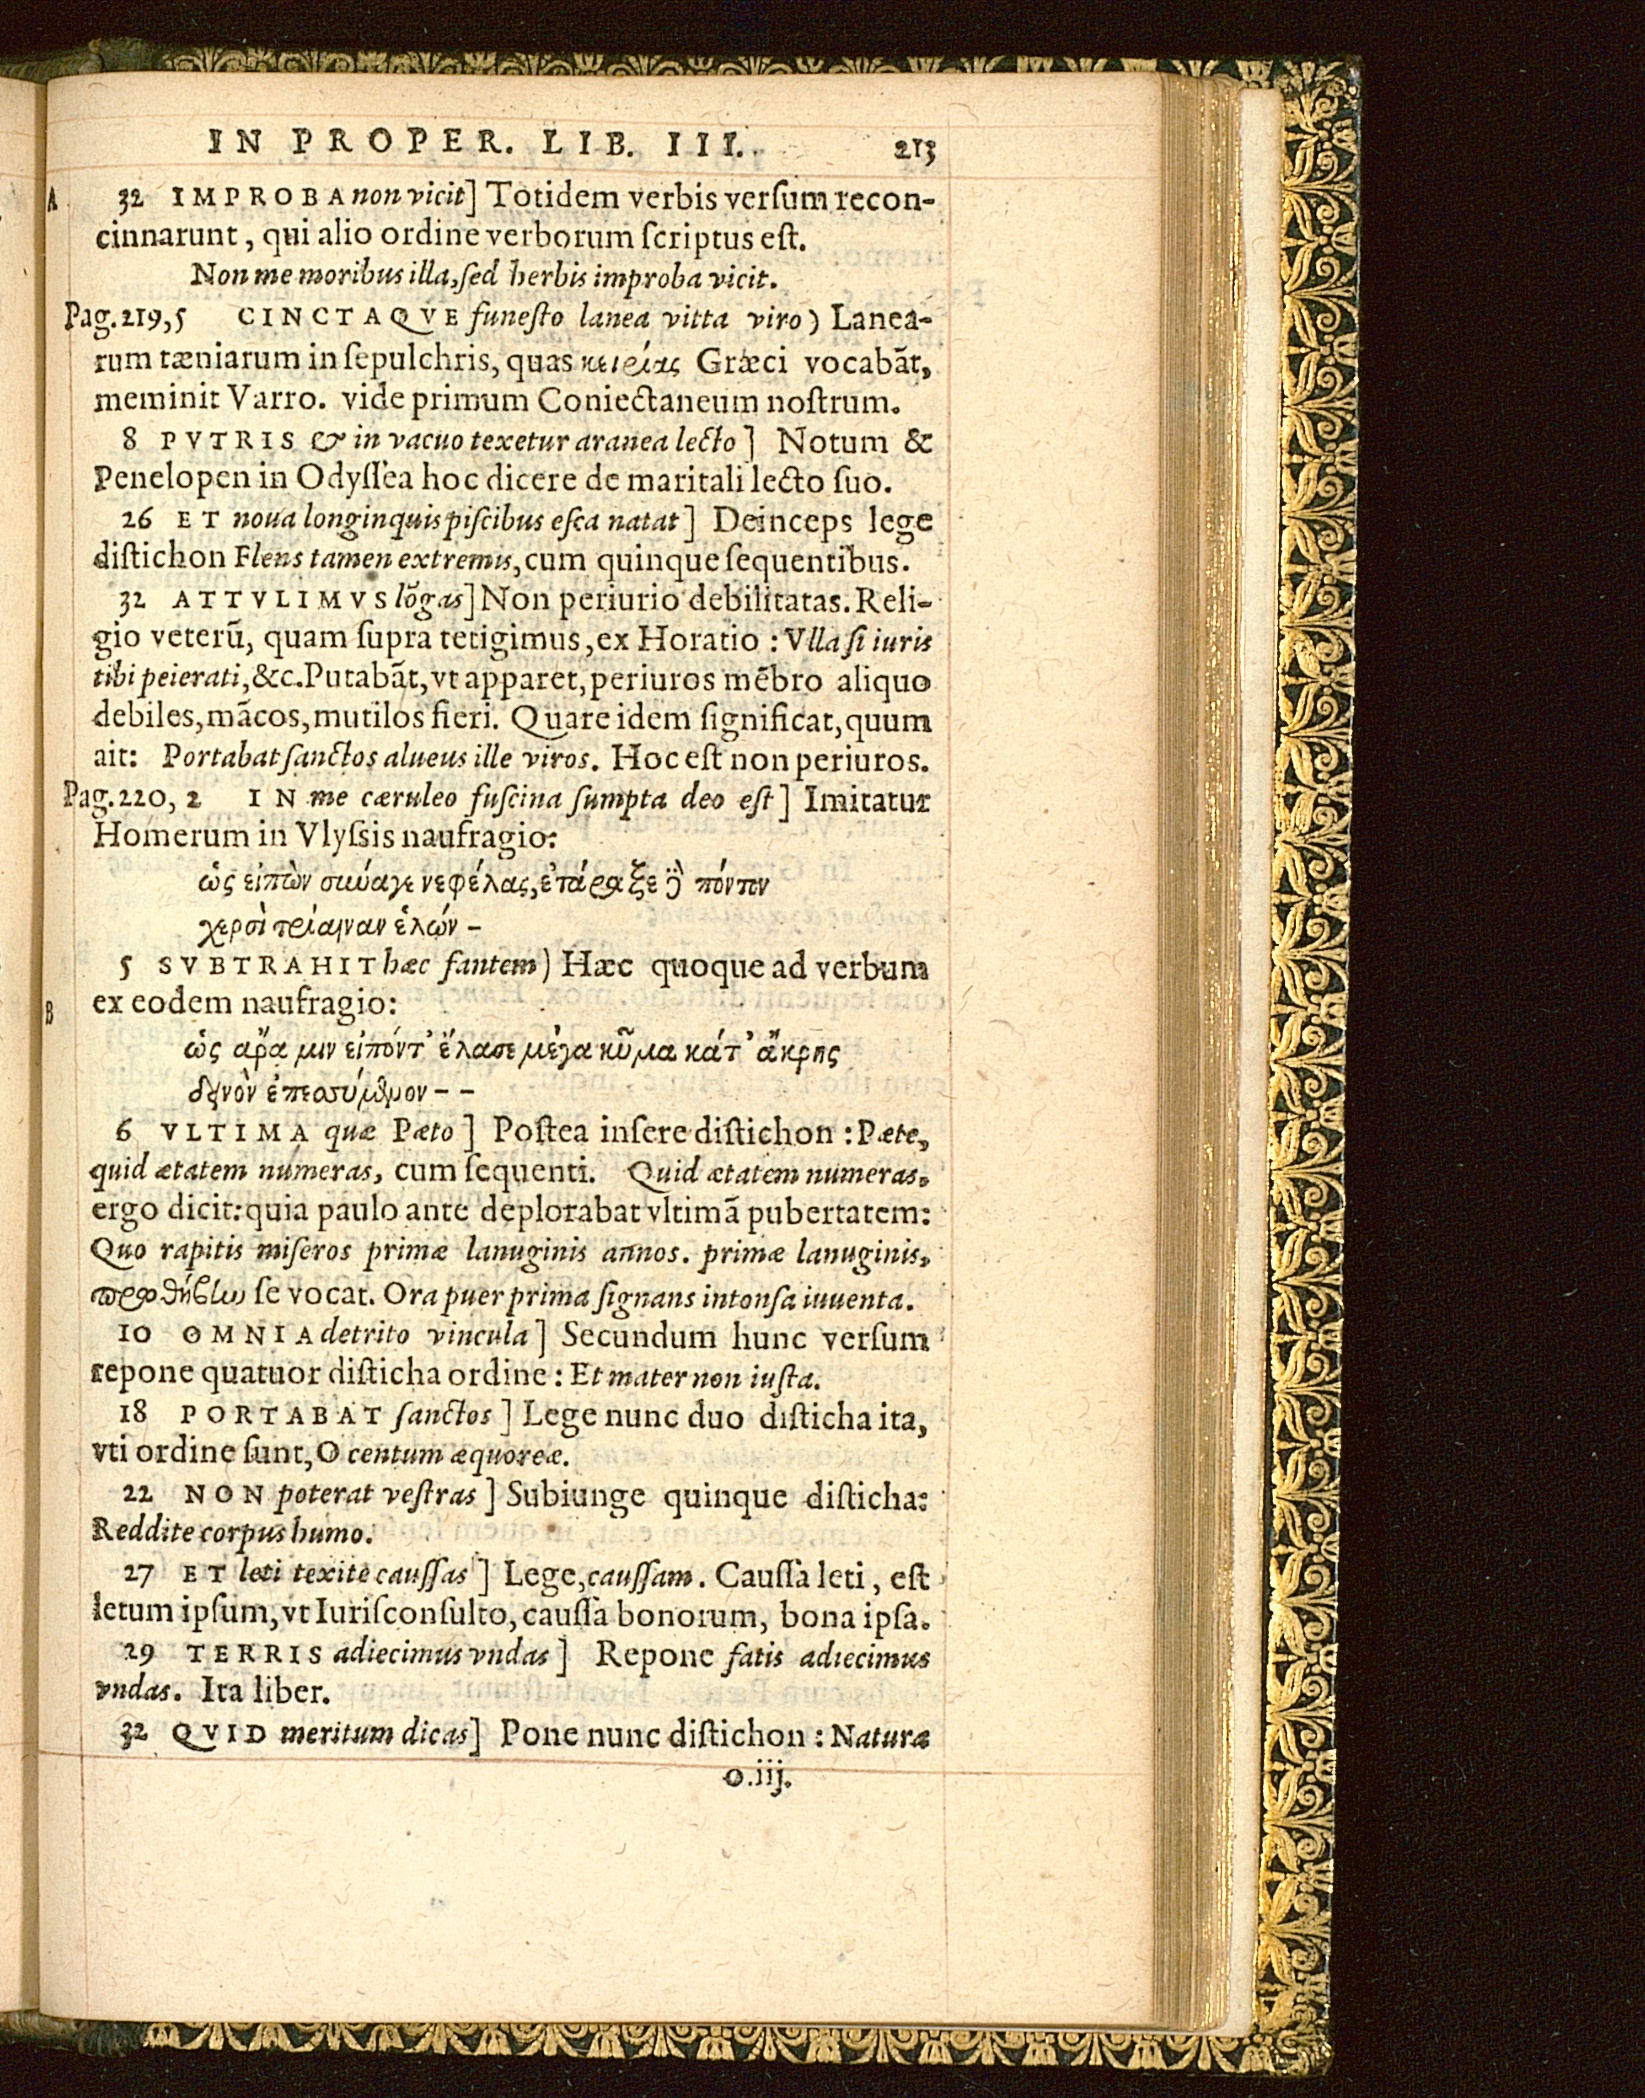 IN PROPER. LIB. III. 213
A 32 IMPROBA non vicit] Totidem verbis verſum recon-
cinnarunt, qui alio ordine verborum ſcriptus eſt.
Non me moribus illa, ſed herbis improba vicit.
Pag. 219, 5 CINCTAQVE funeſto lanea vitta viro) Lanea-
rum tæniarum in ſepulchris, quas κειρίας Græci vocabãt,
meminit Varro. vide primum Coniectaneum noſtrum.
8 PVTRIS & in vacuo texetur aranea lecto] Notum &
Penelopen in Odyſſea hoc dicere de maritali lecto ſuo.
26 ET noua longinquis piſcibus eſca natat] Deinceps lege
diſtichon Flens tamen extremis, cum quinque ſequentibus.
32 ATTVLIMVS lõgas] Non periurio debilitatas. Reli-
gio veterũ, quam ſupra tetigimus, ex Horatio: Vlla ſi iuris
tibi peierati, &c. Putabãt, vt apparet, periuros mẽbro aliquo
debiles, mãcos, mutilos fieri. Quare idem ſignificat, quum
ait: Portabat ſanctos alueus ille viros. Hoc eſt non periuros.
Pag. 220, 2 IN me cæruleo fuſcina ſumpta deo eſt] Imitatur
Homerum in Vlyſsis naufragio:
ὡς εἰπὼν σιώαγε νεφέλας, ἐτάραξε ϳ πόντον
χερσὶ τρίαιναν ἑλών –
5 SVBTRAHIT hæc fantem) Hæc quoque ad verbum
B ex eodem naufragio:
ὡς αρα μιν εἰπόντ' ἔλασε μέγα κῦμα κάτ' ἄκρης
δεινὸν ἐπεσσύμϑμον – –
6 VLTIMA quæ Pæto] Poſtea inſere diſtichon: Pæte,
quid ætatem numeras, cum ſequenti. Quid ætatem numeras,
ergo dicit: quia paulo ante deplorabat vltimã pubertatem:
Quo rapitis miſeros primæ lanuginis annos. primæ lanuginis,
πρωθήβίω ſe vocat. Ora puer prima ſignans intonſa iuuenta.
10 OMNIA detrito vincula] Secundum hunc verſum
repone quatuor diſticha ordine: Et mater non iuſta.
18 PORTABAT ſanctos] Lege nunc duo diſticha ita,
vti ordine ſunt, O centum æquoreæ.
22 NON poterat veſtras] Subiunge quinque diſticha:
Reddite corpus humo.
27 ET leti texite cauſſas] Lege, cauſſam. Cauſſa leti, eſt
letum ipſum, vt Iuriſconſulto, cauſſa bonorum, bona ipſa.
29 TERRIS adiecimus vndas] Repone fatis adiecimus
vndas. Ita liber.
32 QVID meritum dicas] Pone nunc diſtichon: Naturæ
O.iij.